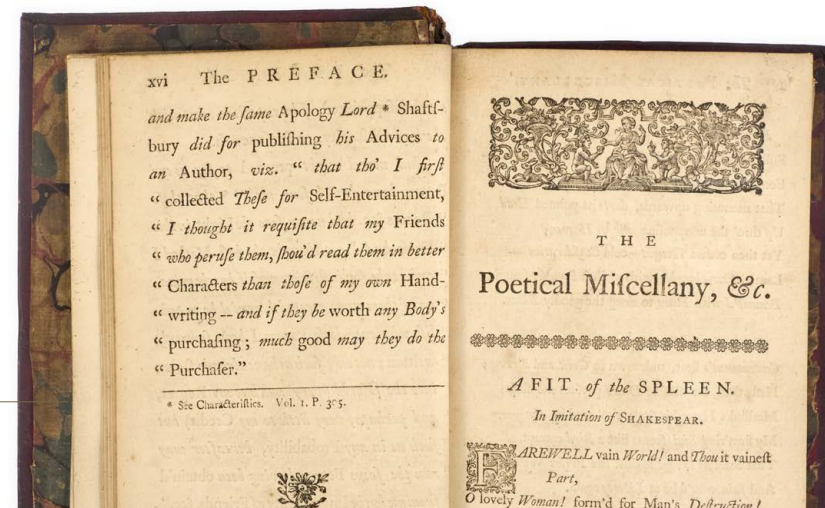 xvi The PREFACE.
and make the ſame Apology Lord * Shaftſ-
bury did for publiſhing his Advices to
an Author, viz. “ that tho' I firſt
“ collected Theſe for Self-Entertainment,
“ I thought it requiſite that my Friends
“ who peruſe them, ſhou'd read them in better
“ Characters than thoſe of my own Hand-
“ writing -- and if they be worth any Body's
“ purchaſing ; much good may they do the
“ Purchaſer.”
* See Characteriſtics. Vol. 1. P. 305.
THE
Poetical Miſcellany, &c.
A FIT of the SPLEEN.
In Imitation of SHAKESPEAR.
FAREWELL vain World! and Thou it vaineſt
Part,
O lovely Woman! form'd for Man's Deſtruction!